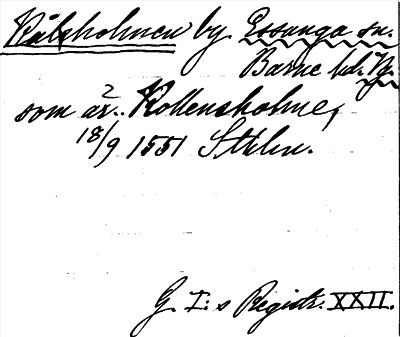 Kålsholmen by Essunga sn.
Barne hd. Vg.
som är 2. Kollensholme,
18/9 1551 Sthlm.
G. I:s Registr. XXII.